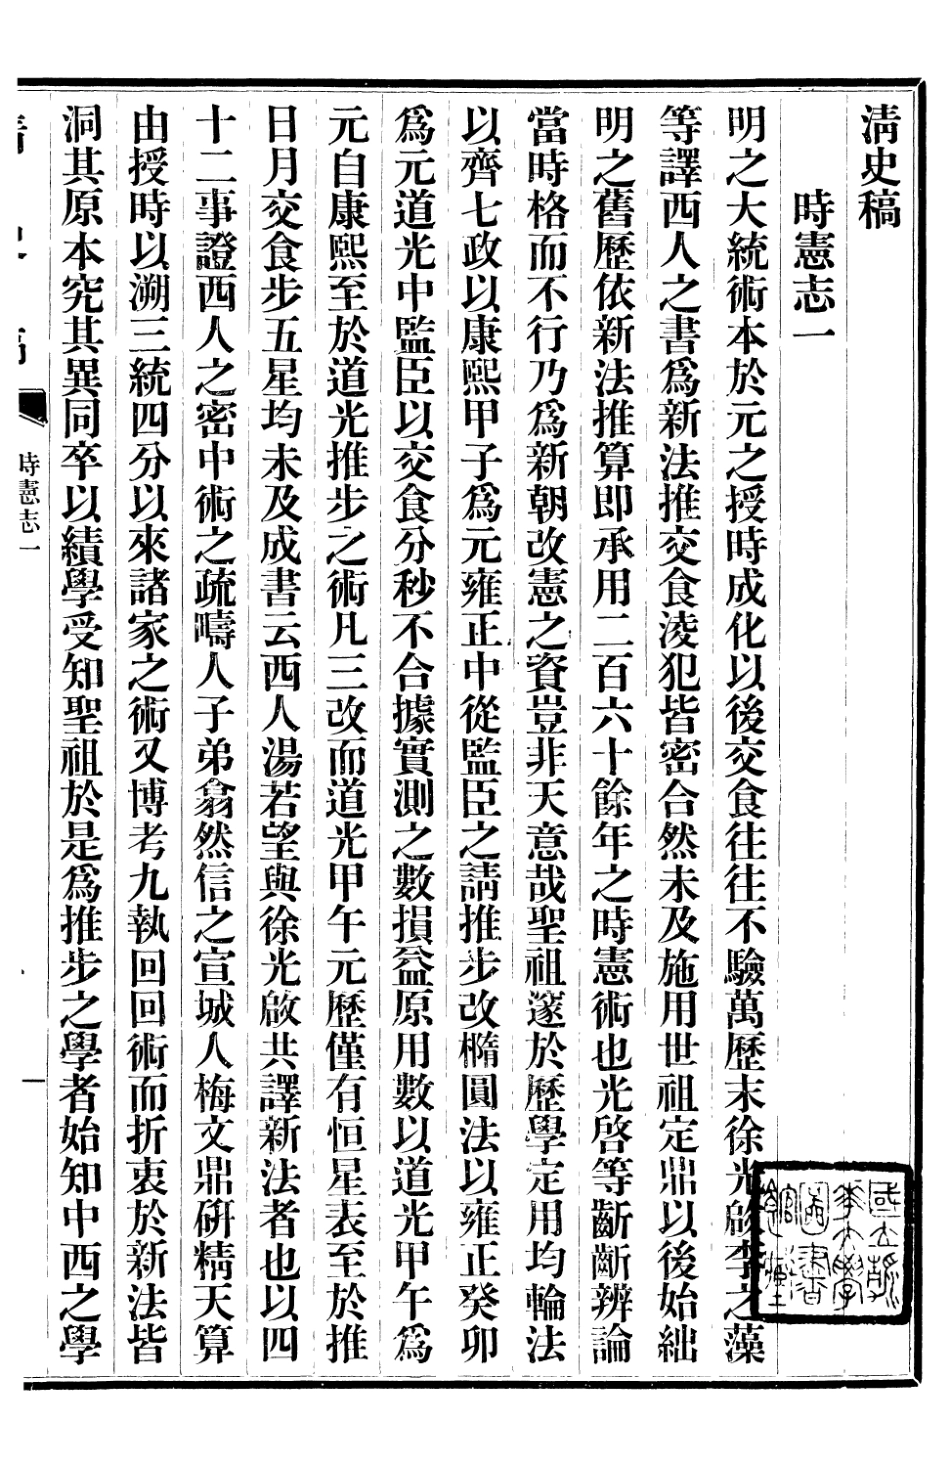 清史稿
時憲志一
明之大統術本於元之授時成化以後交食往往不驗萬歷末徐光啟李之藻
等譯西人之書爲新法推交食淩犯皆密合然未及施用世祖定鼎以後始絀
明之舊歷依新法推算即承用二百六十餘年之時憲術也光啓等齗齗辨論
當時格而不行乃爲新朝改憲之資豈非天意哉聖祖邃於歷學定用均輪法
以齊七政以康熙甲子爲元雍正中從監臣之請推步改橢圓法以雍正癸卯
爲元道光中監臣以交食分秒不合據實測之數損益原用數以道光甲午爲
元自康熙至於道光推步之術凡三改而道光甲午元歷僅有恒星表至於推
日月交食步五星均未及成書云西人湯若望與徐光啟共譯新法者也以四
十二事證西人之密中術之疏疇人子弟翕然信之宣城人梅文鼎研精天算
由授時以溯三統四分以來諸家之術又博考九執回回術而折衷於新法皆
洞其原本究其異同卒以績學受知聖祖於是爲推步之學者始知中西之學
時憲志一
一